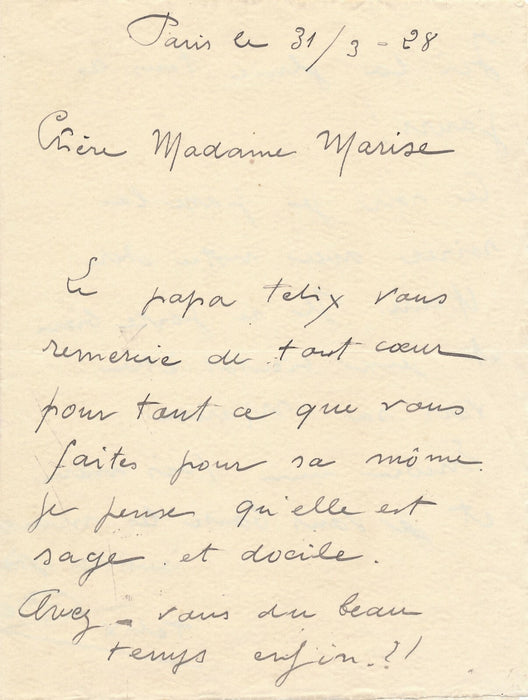 Paris le 31/3-28
Chère Madame Marise
Le papa Felix vous
remercie de tout cœur
pour tout ce que vous
faites pour sa môme.
Je pense qu'elle est
sage et docile.
Avez-vous du beau
temps enfin.?!